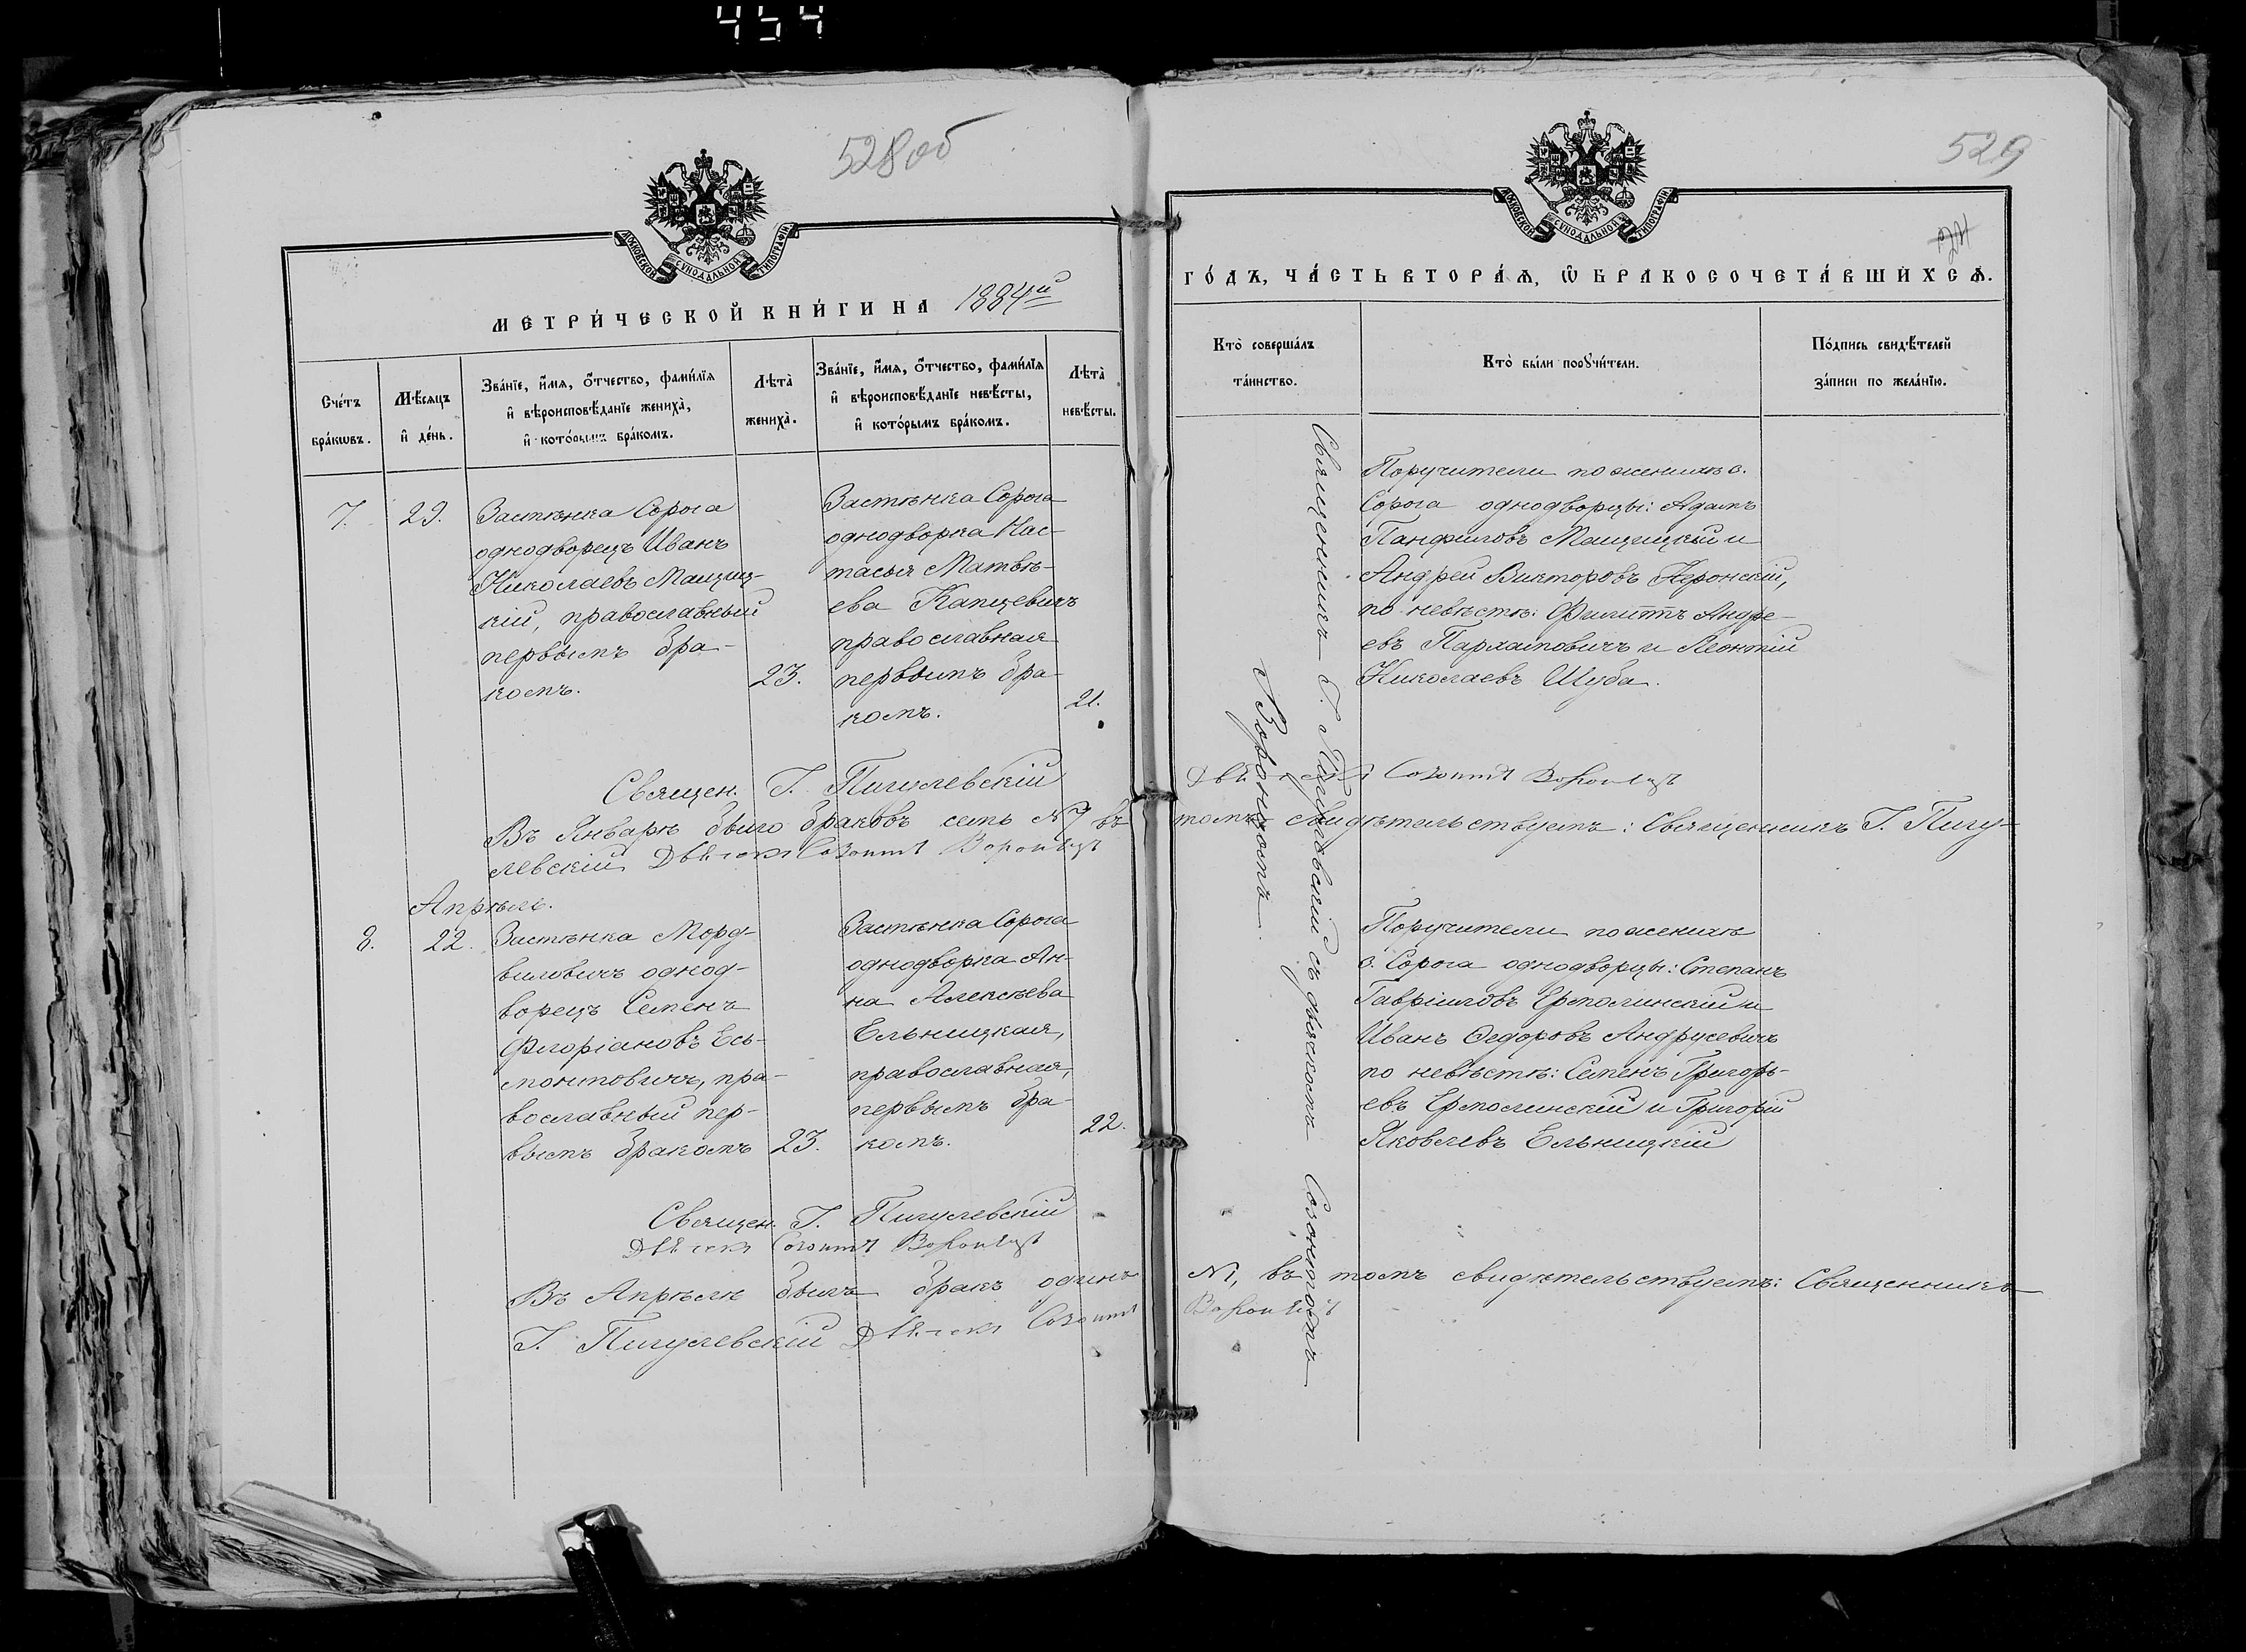 454
528 об
МОСКОВСКОЙ СѴНОДАЛЬНОЙ ТИПОГРАФІИ
МЕТРИ́ЧЕСКОЙ КНИ́ГИ НА 1884й
Счéтъ бра́кѡвъ.
Мѣ́сяцъ и҆ де́нь.
Зва́нїе, и҆́мѧ, ѻ҆́тчество, фами́лїѧ и҆ вѣроисповѣ́данїе жениха̀, и҆ кото́рымъ бра́комъ.
Лѣта̀ жениха̀.
Зва́нїе, и҆́мѧ, ѻ҆́тчество, фами́лїѧ и҆ вѣроисповѣ́данїе невѣ́сты, и҆ кото́рымъ бра́комъ.
Лѣта̀ невѣ́сты.
7.
29.
Застѣнка Сорога
однодворецъ Иванъ
Николаевъ Мацкиц-
кій, православный
первымъ бра-
комъ.
23.
Застѣнка Сорога
однодворка Нас-
тасья Матвѣ-
ева Капцевичъ
православная
первымъ бра-
комъ.
21.
Священ. І. Пигулевскій
Въ Январѣ было браковъ семь №7 въ
левскій Дьячекъ Созонтъ Воронецъ
Апрѣль.
8.
22.
Застѣнка Морд-
виловичъ однод-
ворецъ Семенъ
Флоріановъ Есь-
монтовичъ, пра-
вославный пер-
вымъ бракомъ
23.
Застѣнка Сорога
однодворка Ан-
на Алексѣева
Ельницкая,
православная,
первымъ бра-
комъ.
22.
Священ. І. Пигулевскій
Дьячекъ Созонтъ Воронецъ
Въ Апрѣлѣ былъ бракъ одинъ
І. Пигулевскій Дьячекъ Созонтъ
529
МОСКОВСКОЙ СѴНОДАЛЬНОЙ ТИПОГРАФІИ
ГО́ДЪ, ЧА́СТЬ ВТОРА́Ѧ, Ѡ҆ БРАКОСОЧЕТА́ВШИХСѦ.
Кто̀ соверша́лъ та́инство.
Кто̀ бы́ли порꙋчи́тели.
По́дпись свидѣ́телей за́писи по жела́нїю.
Священникъ І. Пигулевскій съ дьячкомъ Созонтомъ
Воронцомъ.
Поручители по женихѣ о.
Сорога однодворцы: Адамъ
Панфиловъ Мацкицкій и
Андрей Викторовъ Перонскій,
по невѣстѣ: Филиппъ Андре-
евъ Пархамовичъ и Леонтій
Николаевъ Шуба.
Дьячекъ Созонтъ Воронецъ
томъ свидѣтельствуемъ: Священникъ І. Пигу-
Поручители по женихѣ
о. Сорога однодворцы: Степанъ
Гавріиловъ Ермолинскій и
Иванъ Ѳедоровъ Андрусевичъ
по невѣстѣ: Семенъ Григорь-
евъ Ермолинскій и Григорій
Яковлевъ Ельницкій
№1, въ томъ свидѣтельствуемъ: Священникъ
Воронецъ